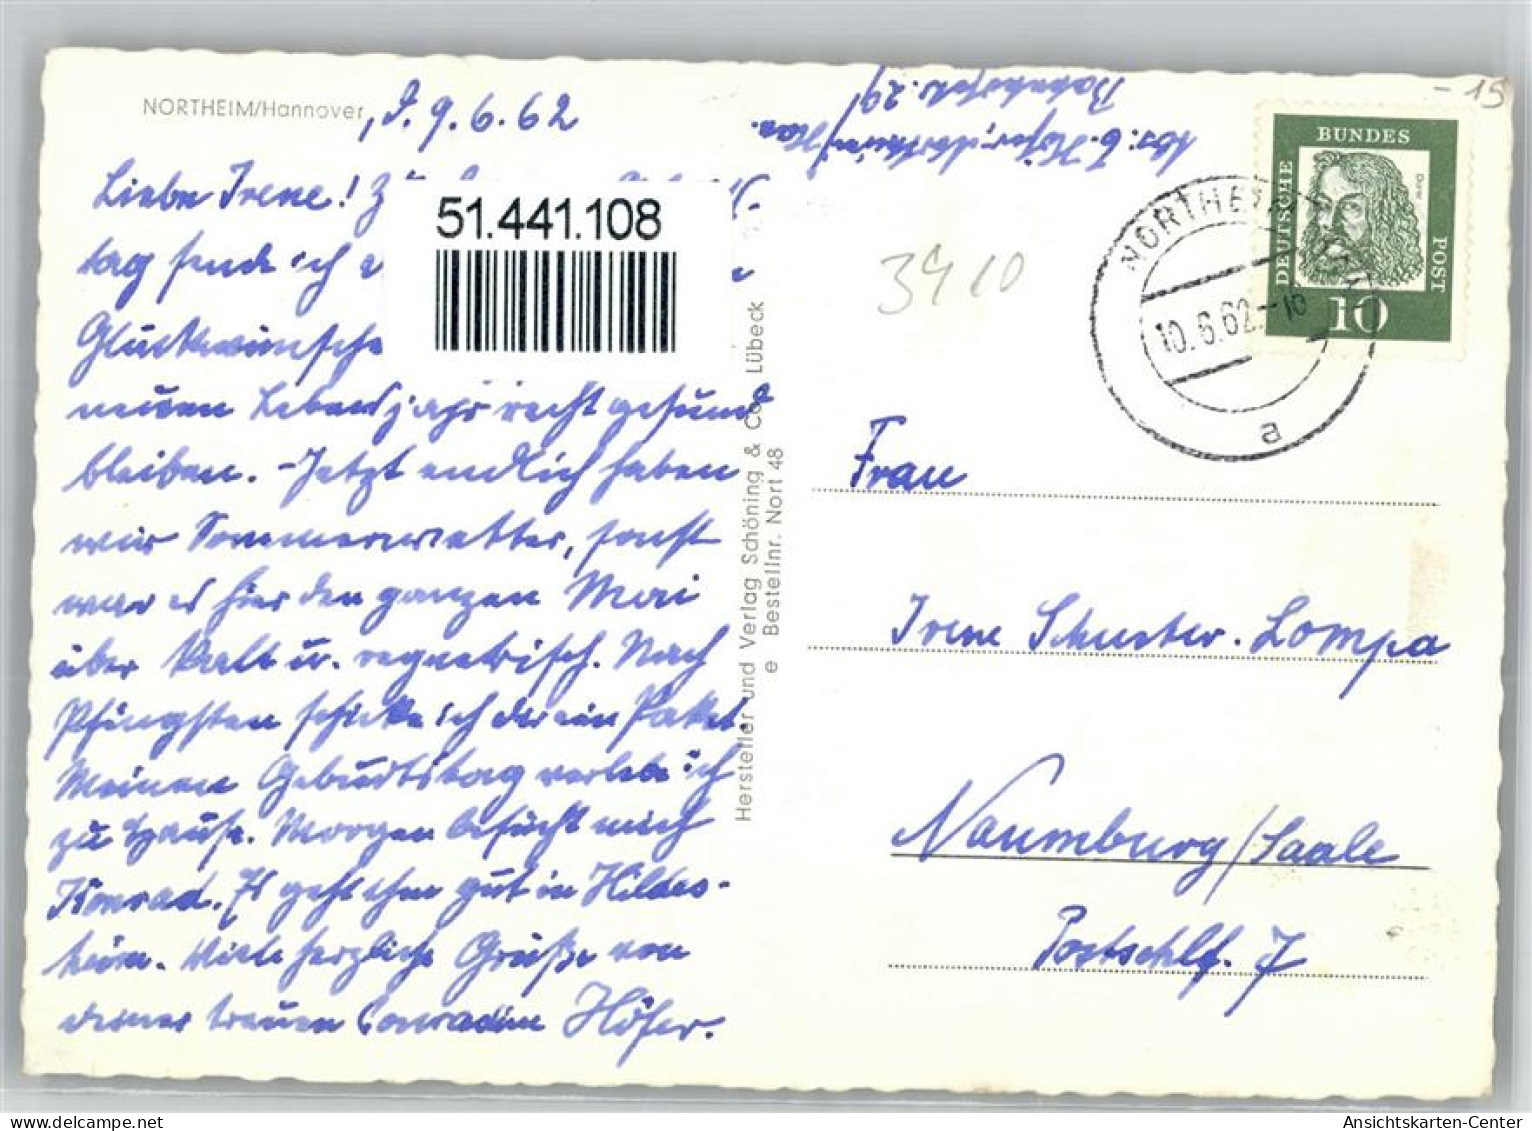 NORTHEIM/Hannover, d. 9.6.62
Liebe Irene! Zu
tag sende ich
Glückwünsche
neuen Lebensjahr recht gesund
bleiben. – Jetzt endlich haben
wir Sommerwetter, sonst
war es hier den ganzen Mai
über kalt u. regnerisch. Nach
Pfingsten schicke ich dir ein Paket.
Meinen Geburtstag verlebe ich
zu Hause. Morgen besucht mich
Konrad. Es geht ihm gut in Hildes-
heim. Viele herzliche Grüße von
deiner treuen Conradine Höfer.
51.441.108
Hersteller und Verlag Schöning & Co., Lübeck
e Bestellnr. Nort 48
Abs: C. Höfer, Northeim/Han.
Bahnhofstr. 29
3410
-15
DEUTSCHE BUNDESPOST
Dürer
10
NORTHEIM
10.6.62.-16
a
Frau
Irene Schuster-Lompa
Naumburg/Saale
Postschlf. 7
oldthing.com
Ansichtskarten-Center